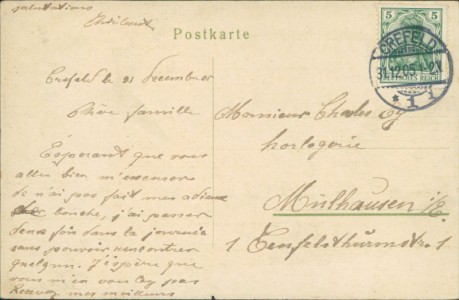 salutations
Postkarte
5 5
CREFELD
31.12.05.1-2N
* 1 i
DEUTSCHES REICH
Crefeld le 31 Decembre 05
Chère famille
Monsieur Charles Gy
horlogerie
Mülhausen i/E.
1 Teufelsthurmstr. 1
Esperant que vous
allez bien m'excuser
de n'ai pas fait mes adieux
bouche, j'ai passer
deux fois dans la journeé
sans pouvoir rencontrer
quelqun. J'espère que
vous m'en pas
Recevez mes meilleurs